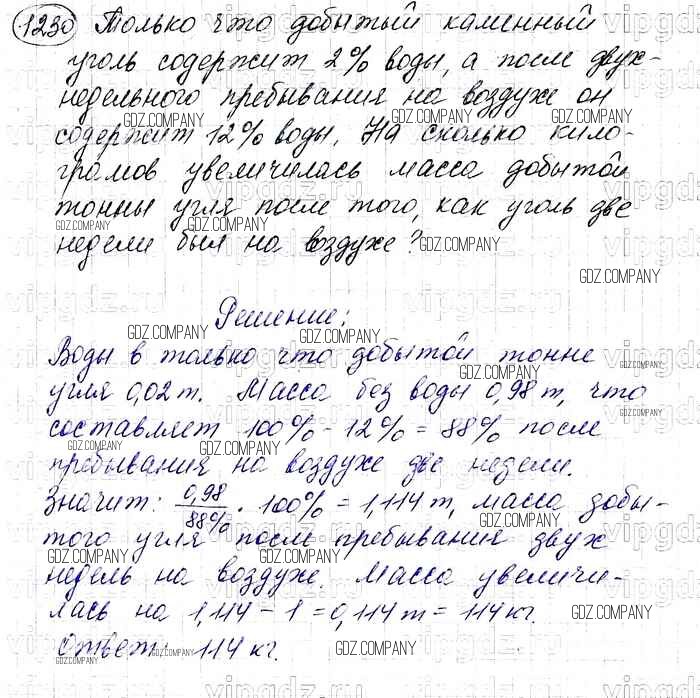 1230 Только что добытый каменный
уголь содержит 2% воды, а после двух-
недельного пребывания на воздухе он
содержит 12% воды. На сколько кило-
грамов увеличилась масса добытой
тонны угля после того, как уголь две
недели был на воздухе?
Решение:
Воды в только что добытой тонне
угля 0,02 т. Масса без воды 0,98 т, что
составляет 100% - 12% = 88% после
пребывания на воздухе две недели.
Значит: 0,98/88% · 100% = 1,114 т, масса добы-
того угля после пребывания двух
недель на воздухе. Масса увеличи-
лась на 1,114 - 1 = 0,114 т = 114 кг.
Ответ: 114 кг.
GDZ.COMPANY
vipgdz.ru